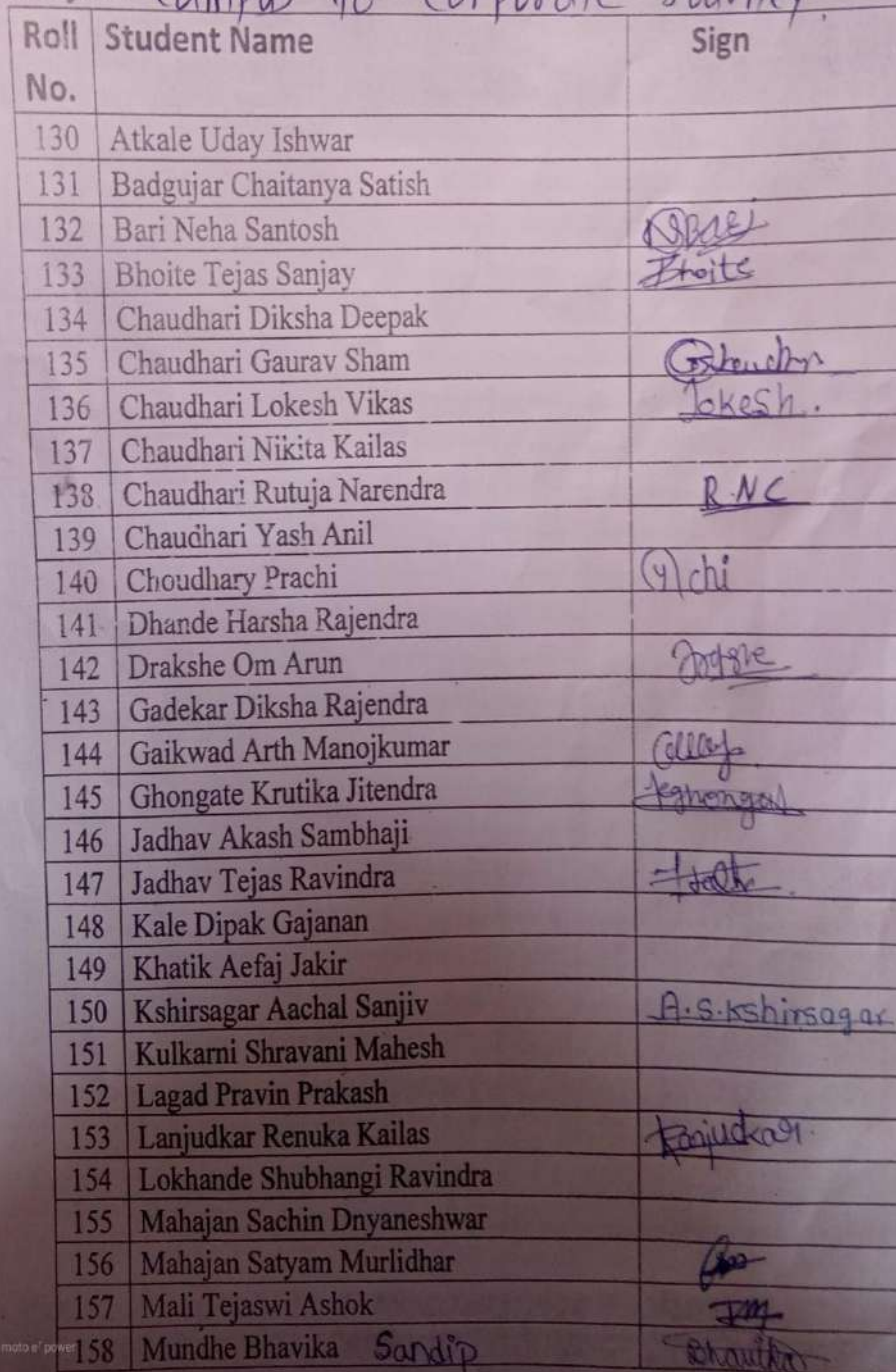 Campus to Corporate Journey
Roll No. Student Name Sign
130 Atkale Uday Ishwar
131 Badgujar Chaitanya Satish
132 Bari Neha Santosh
133 Bhoite Tejas Sanjay Bhoite
134 Chaudhari Diksha Deepak
135 Chaudhari Gaurav Sham
136 Chaudhari Lokesh Vikas Lokesh.
137 Chaudhari Nikita Kailas
138 Chaudhari Rutuja Narendra R.N C
139 Chaudhari Yash Anil
140 Choudhary Prachi chi
141 Dhande Harsha Rajendra
142 Drakshe Om Arun
143 Gadekar Diksha Rajendra
144 Gaikwad Arth Manojkumar
145 Ghongate Krutika Jitendra
146 Jadhav Akash Sambhaji
147 Jadhav Tejas Ravindra
148 Kale Dipak Gajanan
149 Khatik Aefaj Jakir
150 Kshirsagar Aachal Sanjiv A.S.Kshirsagar
151 Kulkarni Shravani Mahesh
152 Lagad Pravin Prakash
153 Lanjudkar Renuka Kailas
154 Lokhande Shubhangi Ravindra
155 Mahajan Sachin Dnyaneshwar
156 Mahajan Satyam Murlidhar
157 Mali Tejaswi Ashok
158 Mundhe Bhavika Sandip
moto e⁷ power